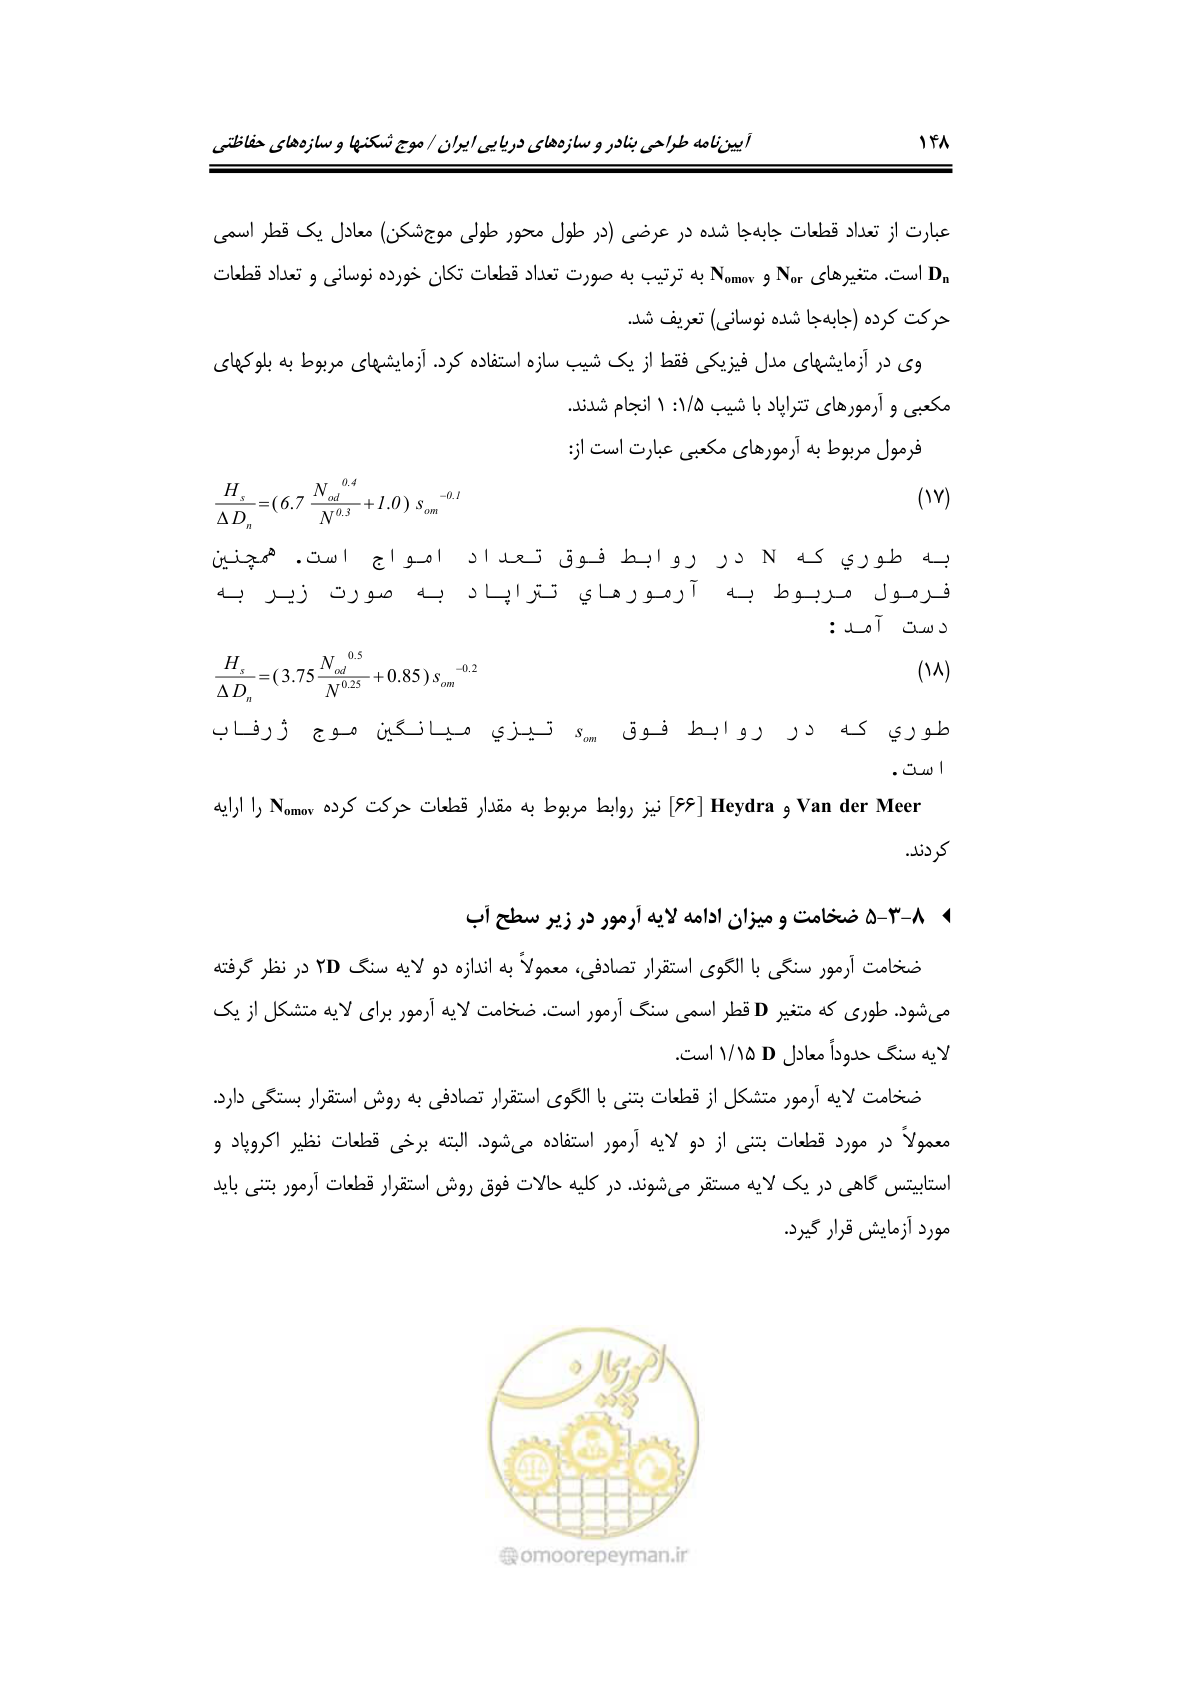 ۱۴۸ آیین‌نامه طراحی بنادر و سازه‌های دریایی ایران / موج شکنها و سازه‌های حفاظتی
عبارت از تعداد قطعات جابه‌جا شده در عرضی (در طول محور طولی موج‌شکن) معادل یک قطر اسمی
Dn است. متغیرهای Nor و Nomov به ترتیب به صورت تعداد قطعات تکان خورده نوسانی و تعداد قطعات
حرکت کرده (جابه‌جا شده نوسانی) تعریف شد.
وی در آزمایشهای مدل فیزیکی فقط از یک شیب سازه استفاده کرد. آزمایشهای مربوط به بلوکهای
مکعبی و آرمورهای تتراپاد با شیب ۱/۵: ۱ انجام شدند.
فرمول مربوط به آرمورهای مکعبی عبارت است از:
(۱۷) H_s / Δ D_n = (6.7 N_od^0.4 / N^0.3 + 1.0) s_om^−0.1
به طوري که N در روابط فوق تعداد امواج است. همچنین
فرمول مربوط به آرمورهاي تتراپاد به صورت زیر به
دست آمد:
(۱۸) H_s / Δ D_n = (3.75 N_od^0.5 / N^0.25 + 0.85) s_om^−0.2
طوري که در روابط فوق s_om تیزي میانگین موج ژرفاب
است.
Van der Meer و Heydra [۶۶] نیز روابط مربوط به مقدار قطعات حرکت کرده Nomov را ارایه
کردند.
۵-۳-۸ ضخامت و میزان ادامه لایه آرمور در زیر سطح آب
ضخامت آرمور سنگی با الگوی استقرار تصادفی، معمولاً به اندازه دو لایه سنگ ۲D در نظر گرفته
می‌شود. طوری که متغیر D قطر اسمی سنگ آرمور است. ضخامت لایه آرمور برای لایه متشکل از یک
لایه سنگ حدوداً معادل ۱/۱۵ D است.
ضخامت لایه آرمور متشکل از قطعات بتنی با الگوی استقرار تصادفی به روش استقرار بستگی دارد.
معمولاً در مورد قطعات بتنی از دو لایه آرمور استفاده می‌شود. البته برخی قطعات نظیر اکروپاد و
استابیتس گاهی در یک لایه مستقر می‌شوند. در کلیه حالات فوق روش استقرار قطعات آرمور بتنی باید
مورد آزمایش قرار گیرد.
امور پیمان
@omoorepeyman.ir